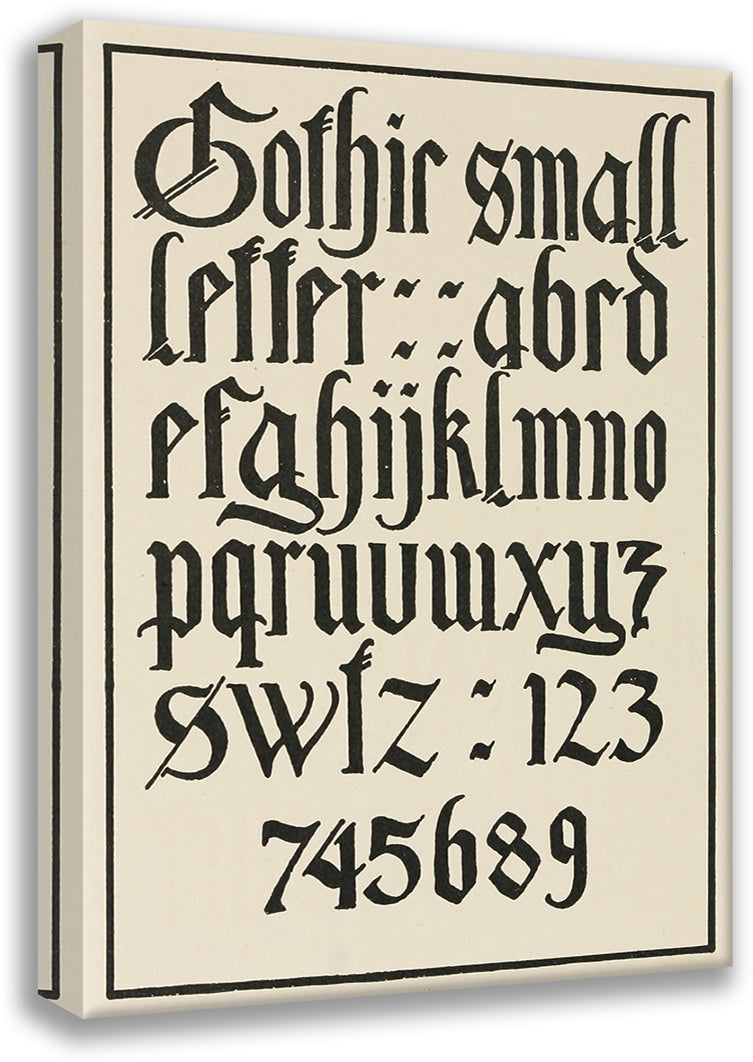 Gothic small
letter :: abcd
efghijklmno
pqruvwxyz
swtz : 123
745689